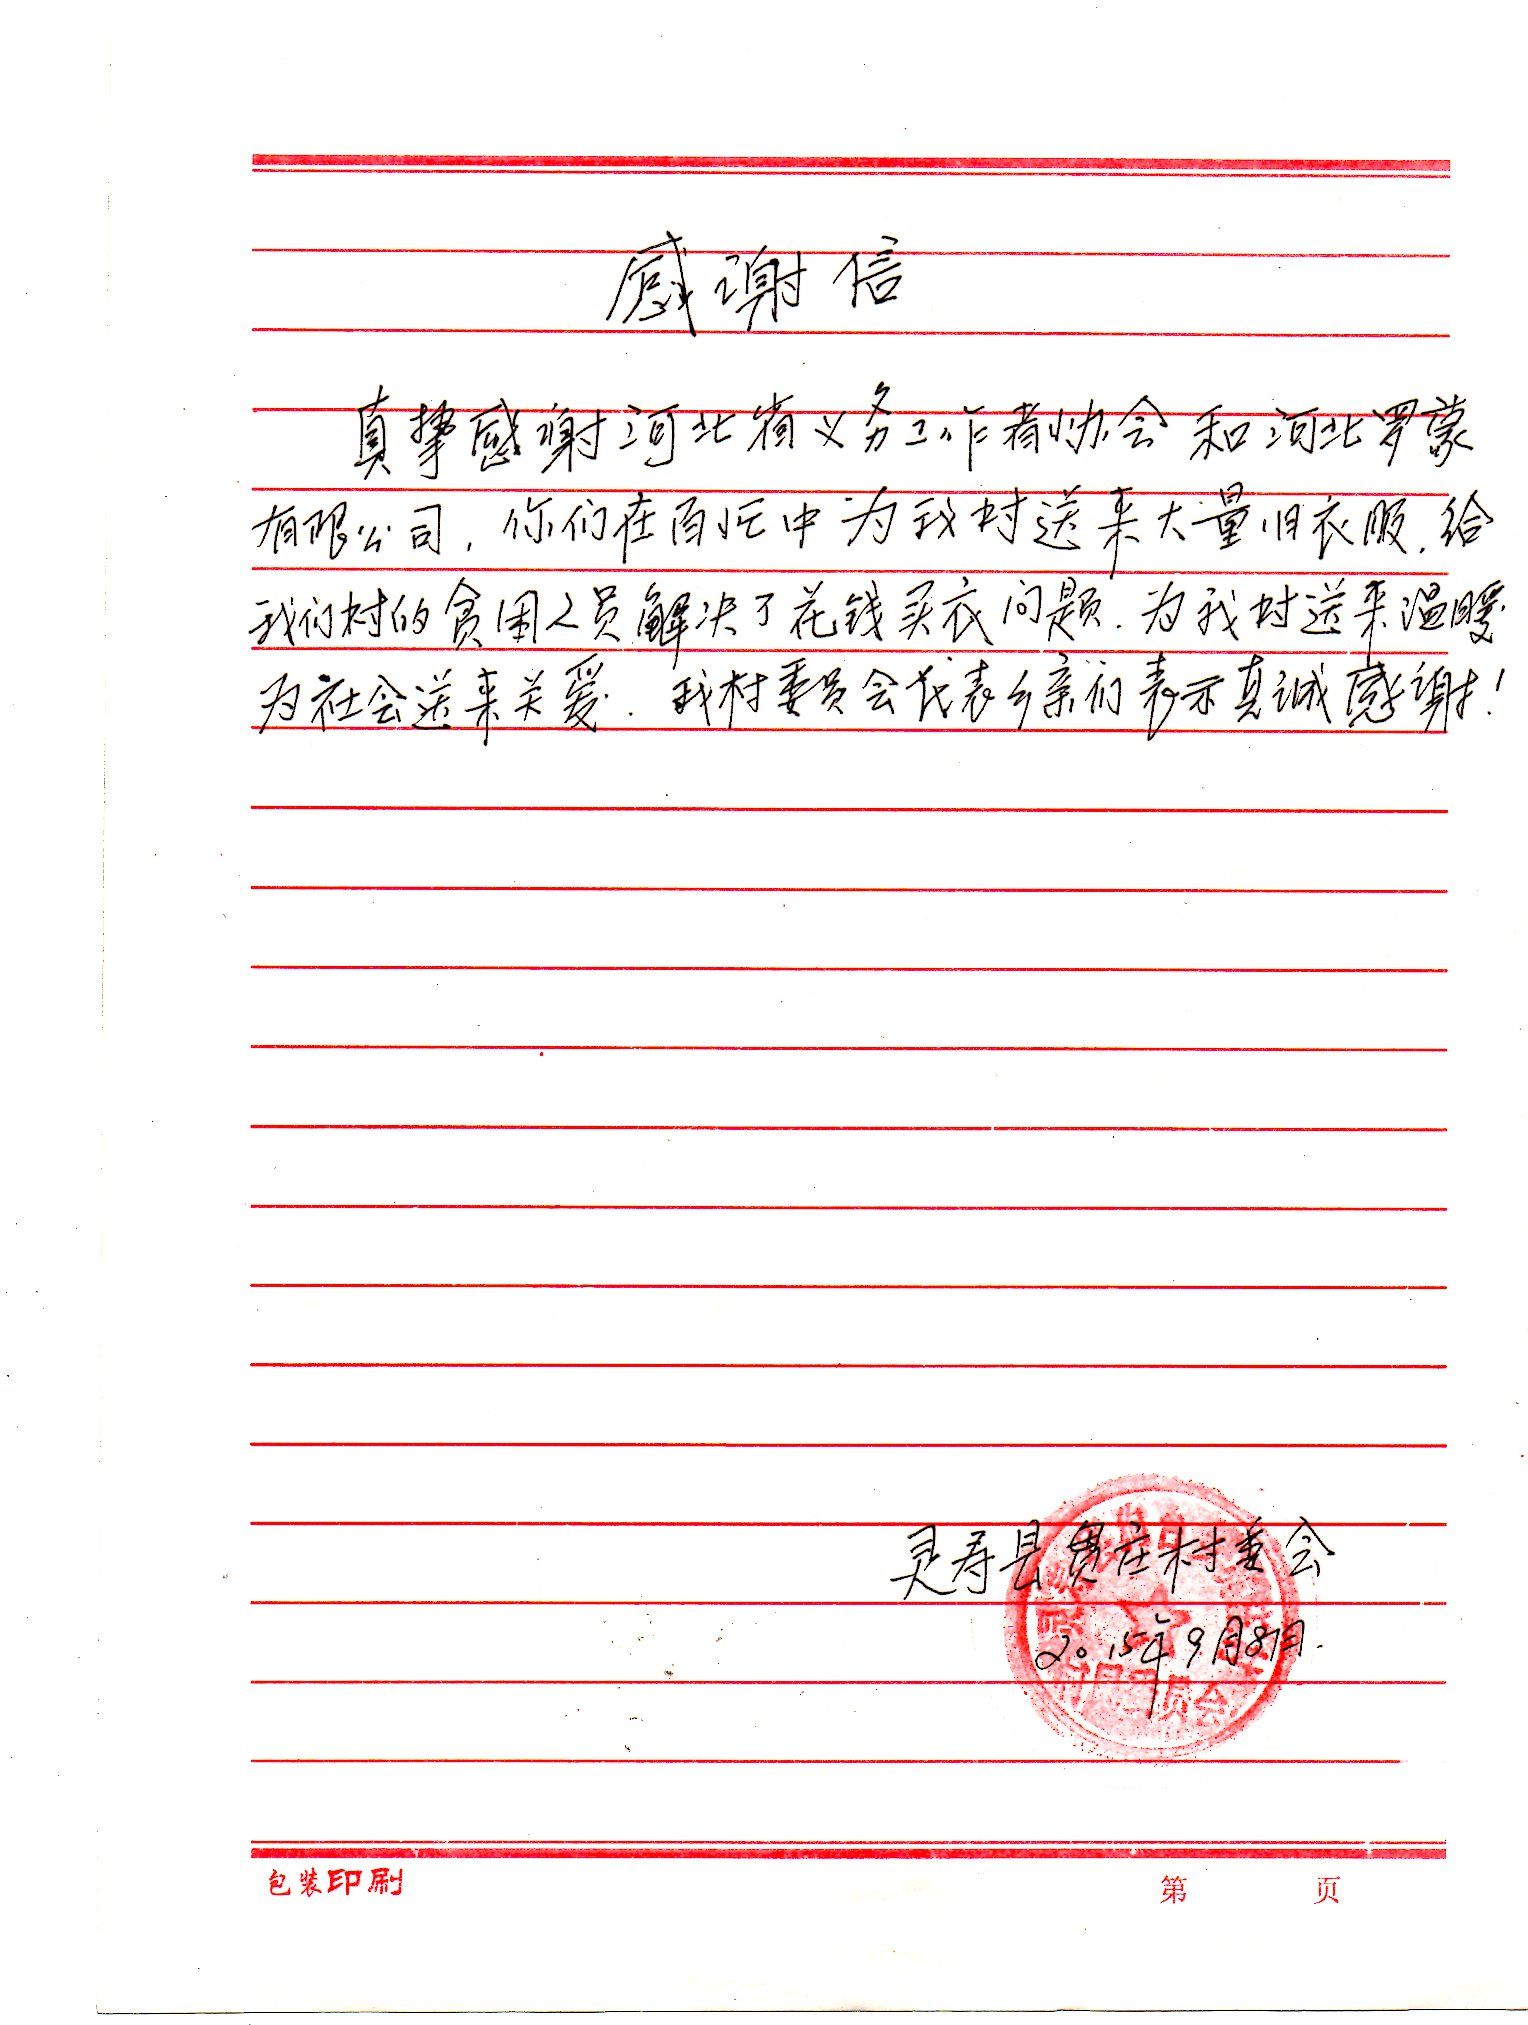 感谢信
真挚感谢河北省义务工作者协会和河北罗蒙
有限公司，你们在百忙中为我村送来大量旧衣服，给
我们村的贫困人员解决了花钱买衣问题，为我村送来温暖
为社会送来关爱，我村委员会代表乡亲们表示真诚感谢！
灵寿县贾庄村委会
2015年9月8日.
村民委员会
包装印刷
第 页